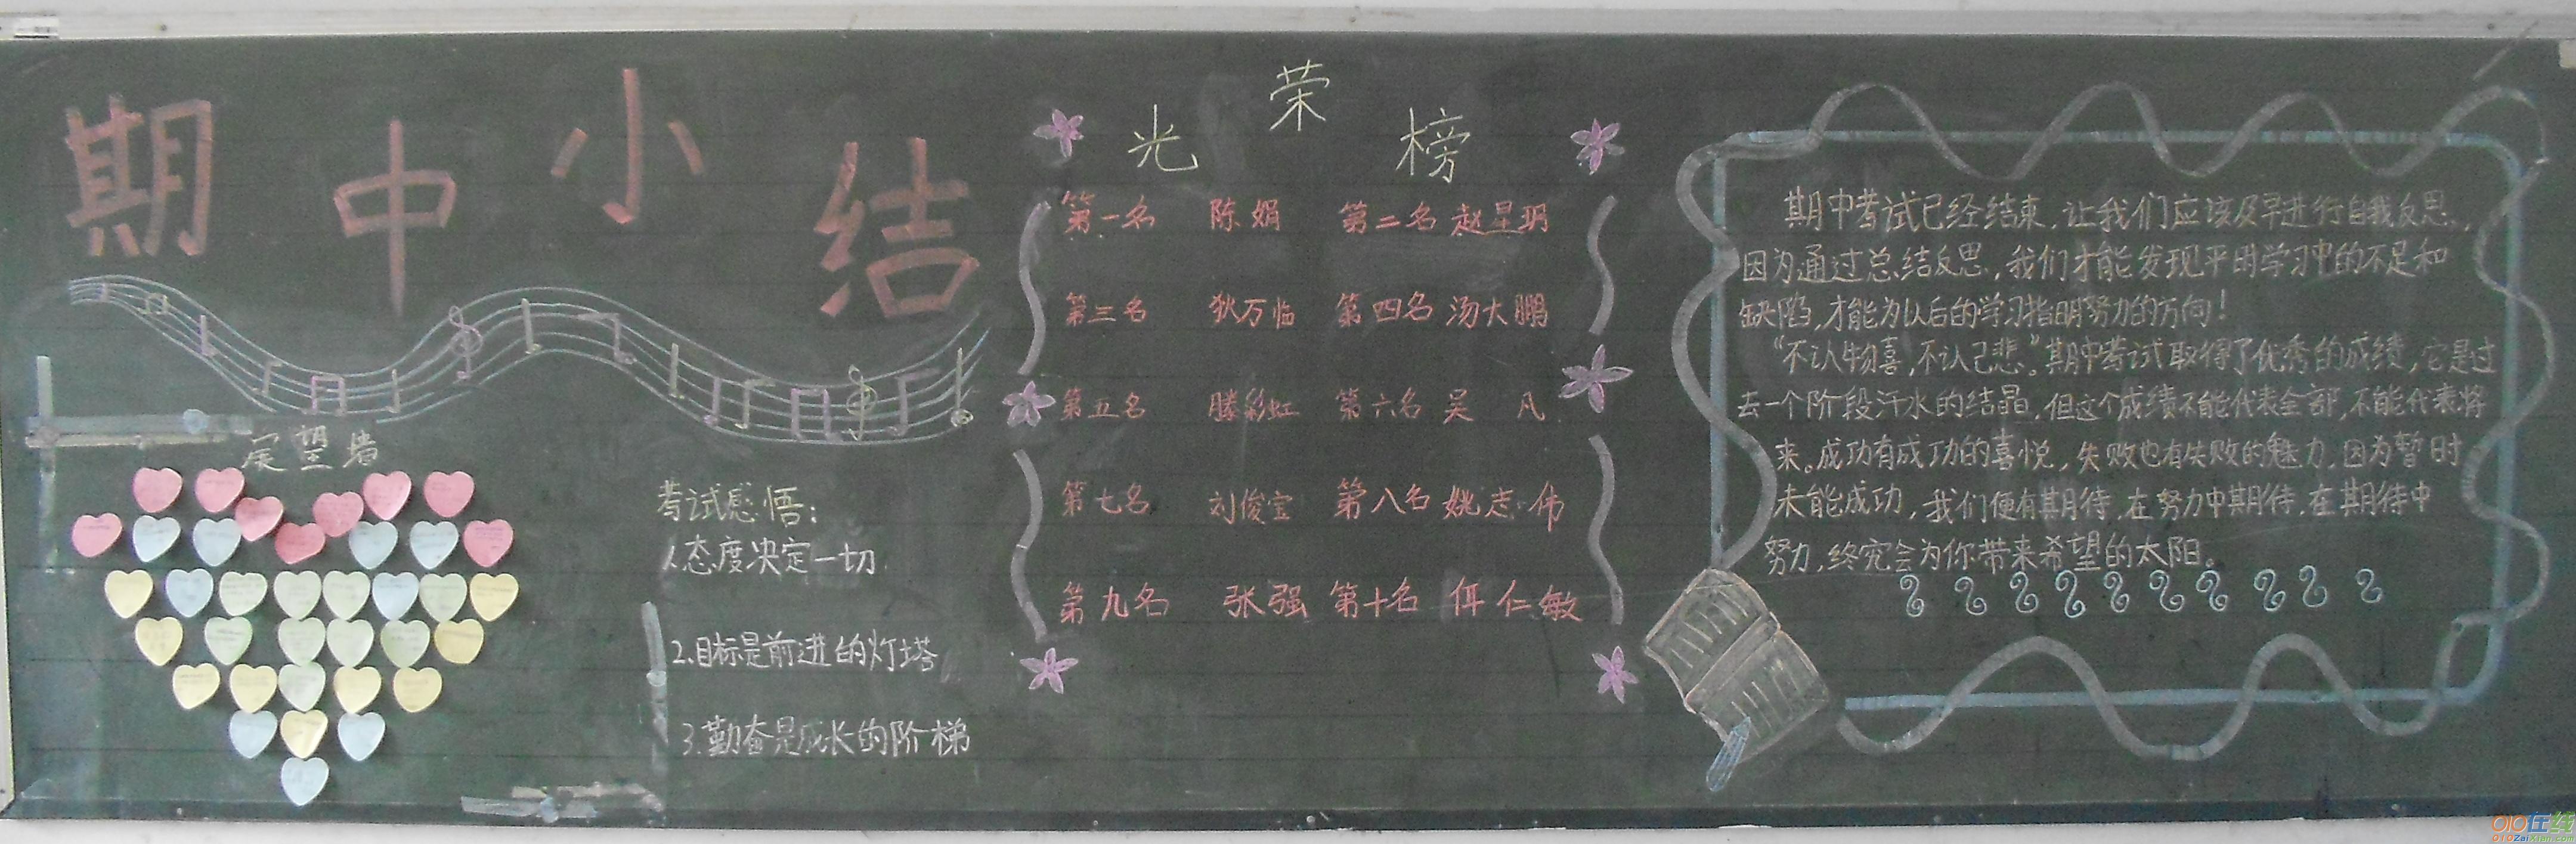 期中小结
展望墙
考试感悟:
1态度决定一切
2.目标是前进的灯塔
3.勤奋是成长的阶梯
光荣榜
第一名 陈娟 第二名 赵星玥
第三名 狄万临 第四名 汤大鹏
第五名 滕彩虹 第六名 吴凡
第七名 刘俊宝 第八名 姚志伟
第九名 张强 第十名 佴仁敏
期中考试已经结束,让我们应该及早进行自我反思,
因为通过总结反思,我们才能发现平时学习中的不足和
缺陷,才能为以后的学习指明努力的方向!
“不认物喜,不认己悲”。期中考试取得了优秀的成绩,它是过
去一个阶段汗水的结晶,但这个成绩不能代表全部,不能代表将
来。成功有成功的喜悦,失败也有失败的魅力,因为暂时
未能成功,我们便有期待,在努力中期待,在期待中
努力,终究会为你带来希望的太阳。
010在线
010ZaiXian.com